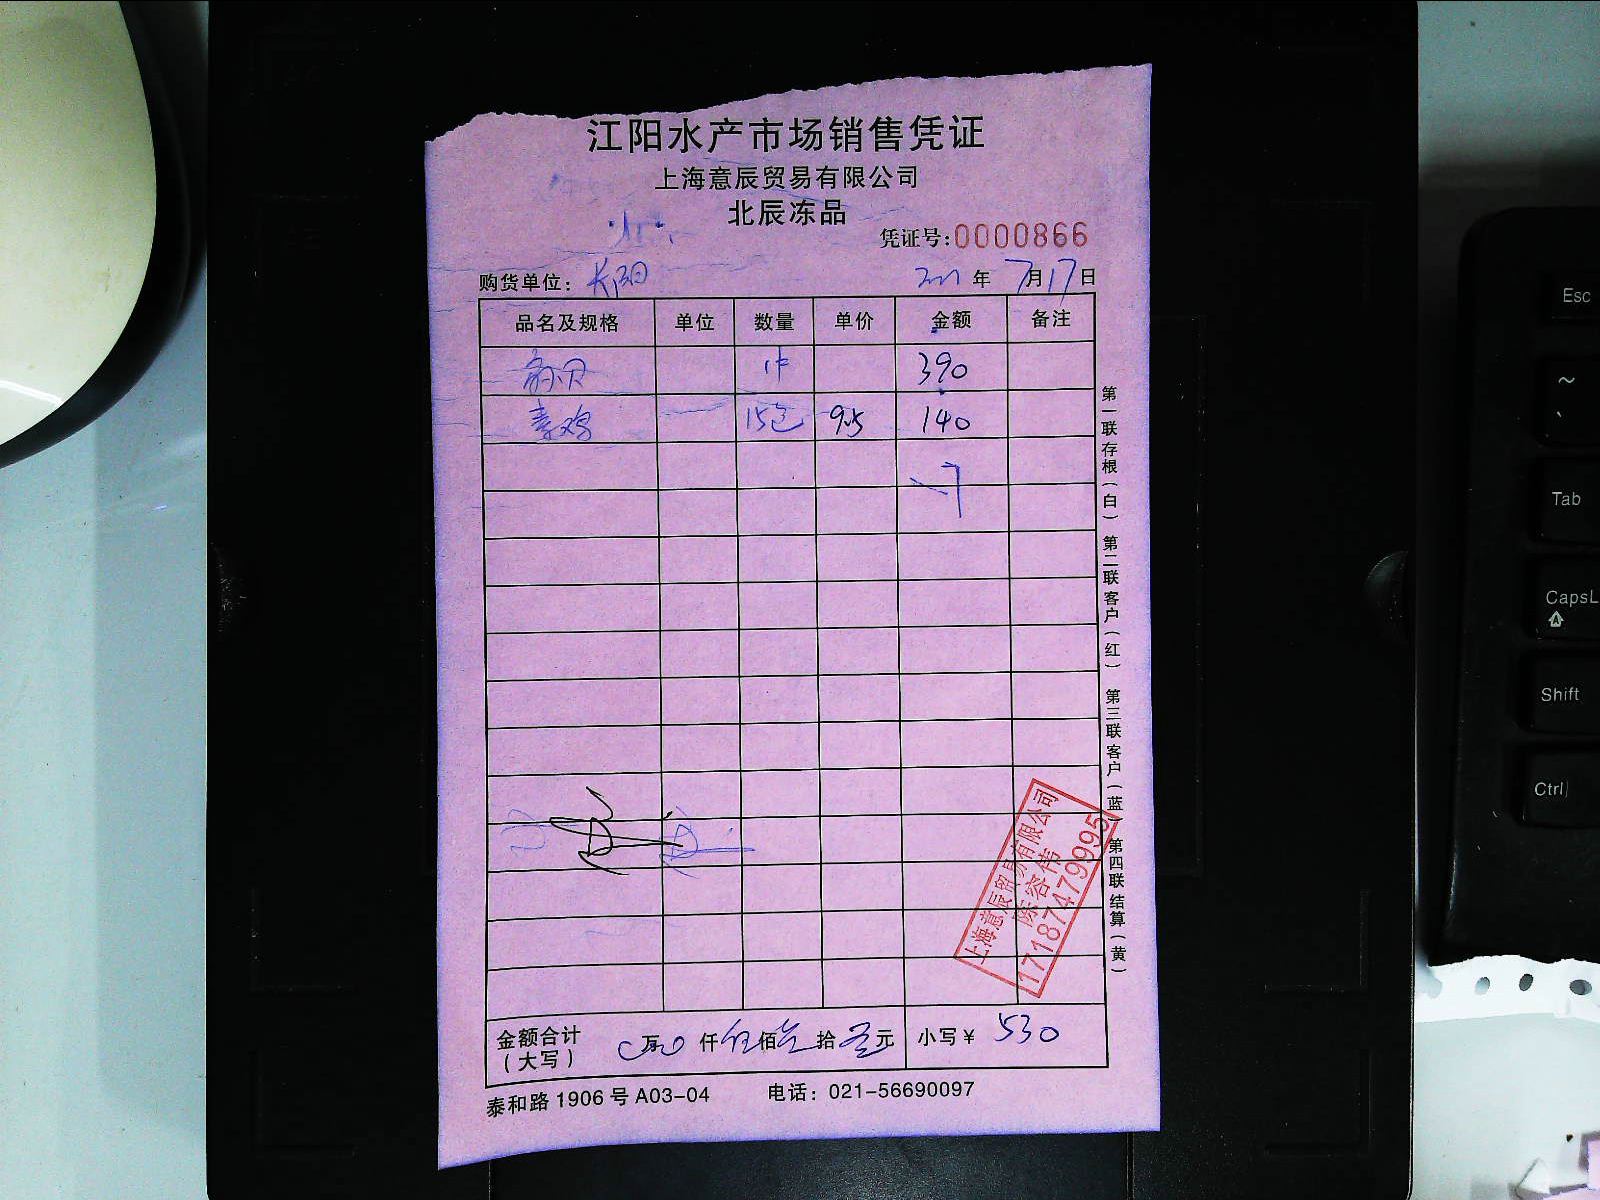 江阳水产市场销售凭证
上海意辰贸易有限公司
北辰冻品
凭证号:0000866
购货单位: 长阳 年 7月17日
品名及规格 单位 数量 单价 金额 备注
扇贝 1件 390
素鸡 15包 9.5 140
第一联存根(白) 第二联客户(红) 第三联客户(蓝) 第四联结算(黄)
上海意辰贸易有限公司
陈容伟
17187479995
金额合计(大写) 0万0仟伍佰 拾 元 小写¥ 530
泰和路1906号A03-04 电话: 021-56690097
Esc
~
Tab
CapsL
Shift
Ctrl